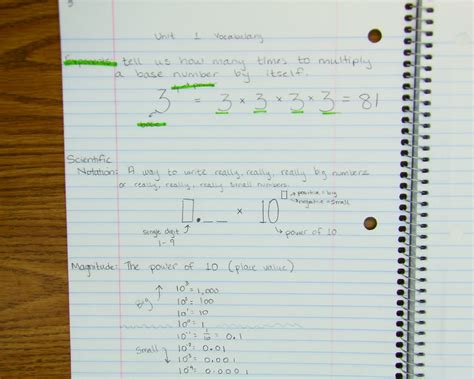 Unit 1 Vocabulary
Exponents tell us how many times to multiply
a base number by itself.
exponent
3 = 3 × 3 × 3 × 3 = 81
base
Scientific
Notation: A way to write really, really, really big numbers
or really, really, really small numbers.
positive = big
negative = small
. _ _ × 10
single digit
1-9
power of 10
Magnitude: The power of 10 (place value)
Big
10³ = 1,000
10² = 100
10¹ = 10
10⁰ = 1
10⁻¹ = 1/10 = 0.1
Small
10⁻² = 0.01
10⁻³ = 0.001
10⁻⁴ = 0.0001